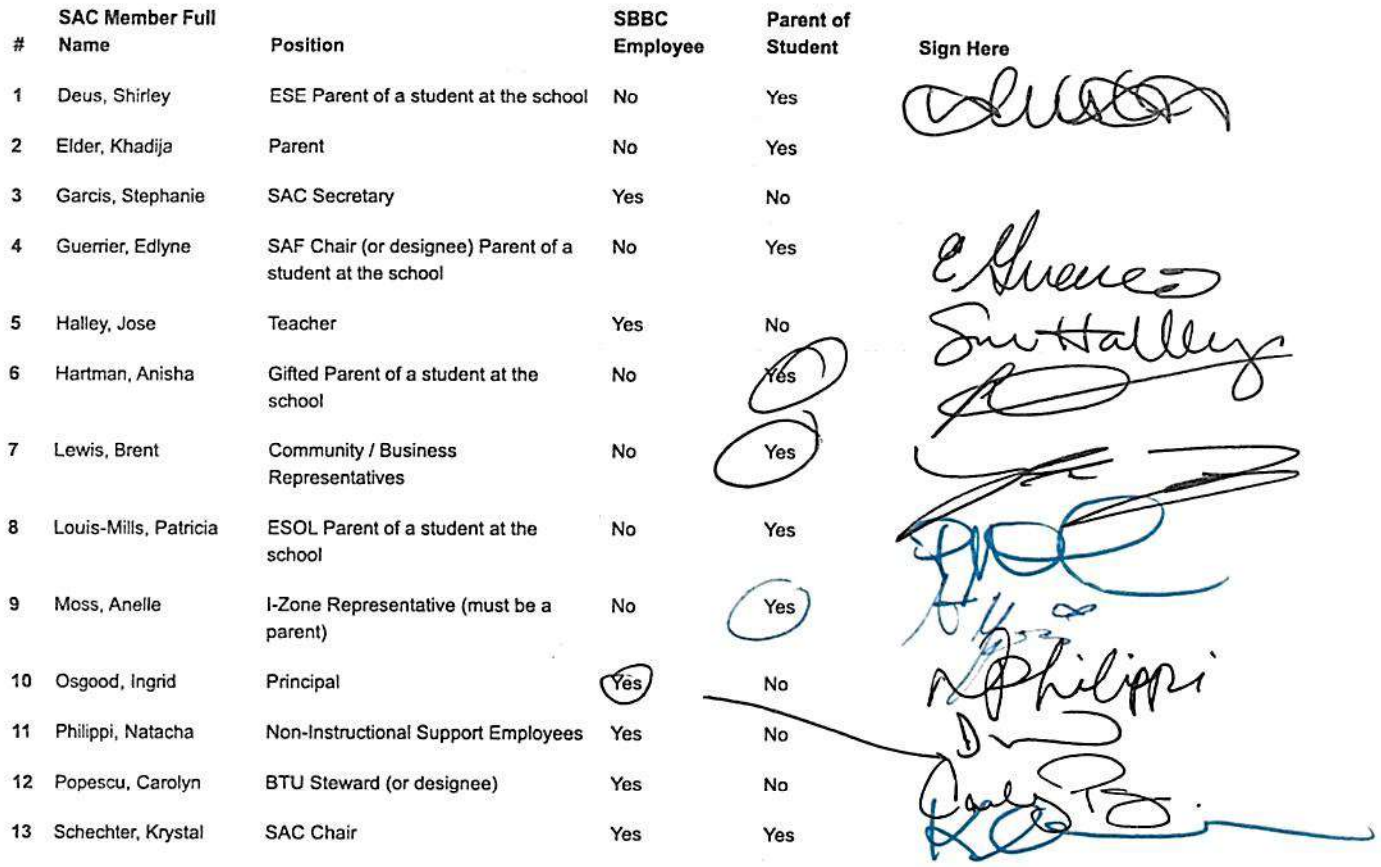 # SAC Member Full Name Position SBBC Employee Parent of Student Sign Here
1 Deus, Shirley ESE Parent of a student at the school No Yes
2 Elder, Khadija Parent No Yes
3 Garcis, Stephanie SAC Secretary Yes No
4 Guerrier, Edlyne SAF Chair (or designee) Parent of a No Yes
student at the school
5 Halley, Jose Teacher Yes No Halley
6 Hartman, Anisha Gifted Parent of a student at the No Yes
school
7 Lewis, Brent Community / Business No Yes
Representatives
8 Louis-Mills, Patricia ESOL Parent of a student at the No Yes
school
9 Moss, Anelle I-Zone Representative (must be a No Yes
parent)
10 Osgood, Ingrid Principal Yes No NPhilippi
11 Philippi, Natacha Non-Instructional Support Employees Yes No
12 Popescu, Carolyn BTU Steward (or designee) Yes No
13 Schechter, Krystal SAC Chair Yes Yes